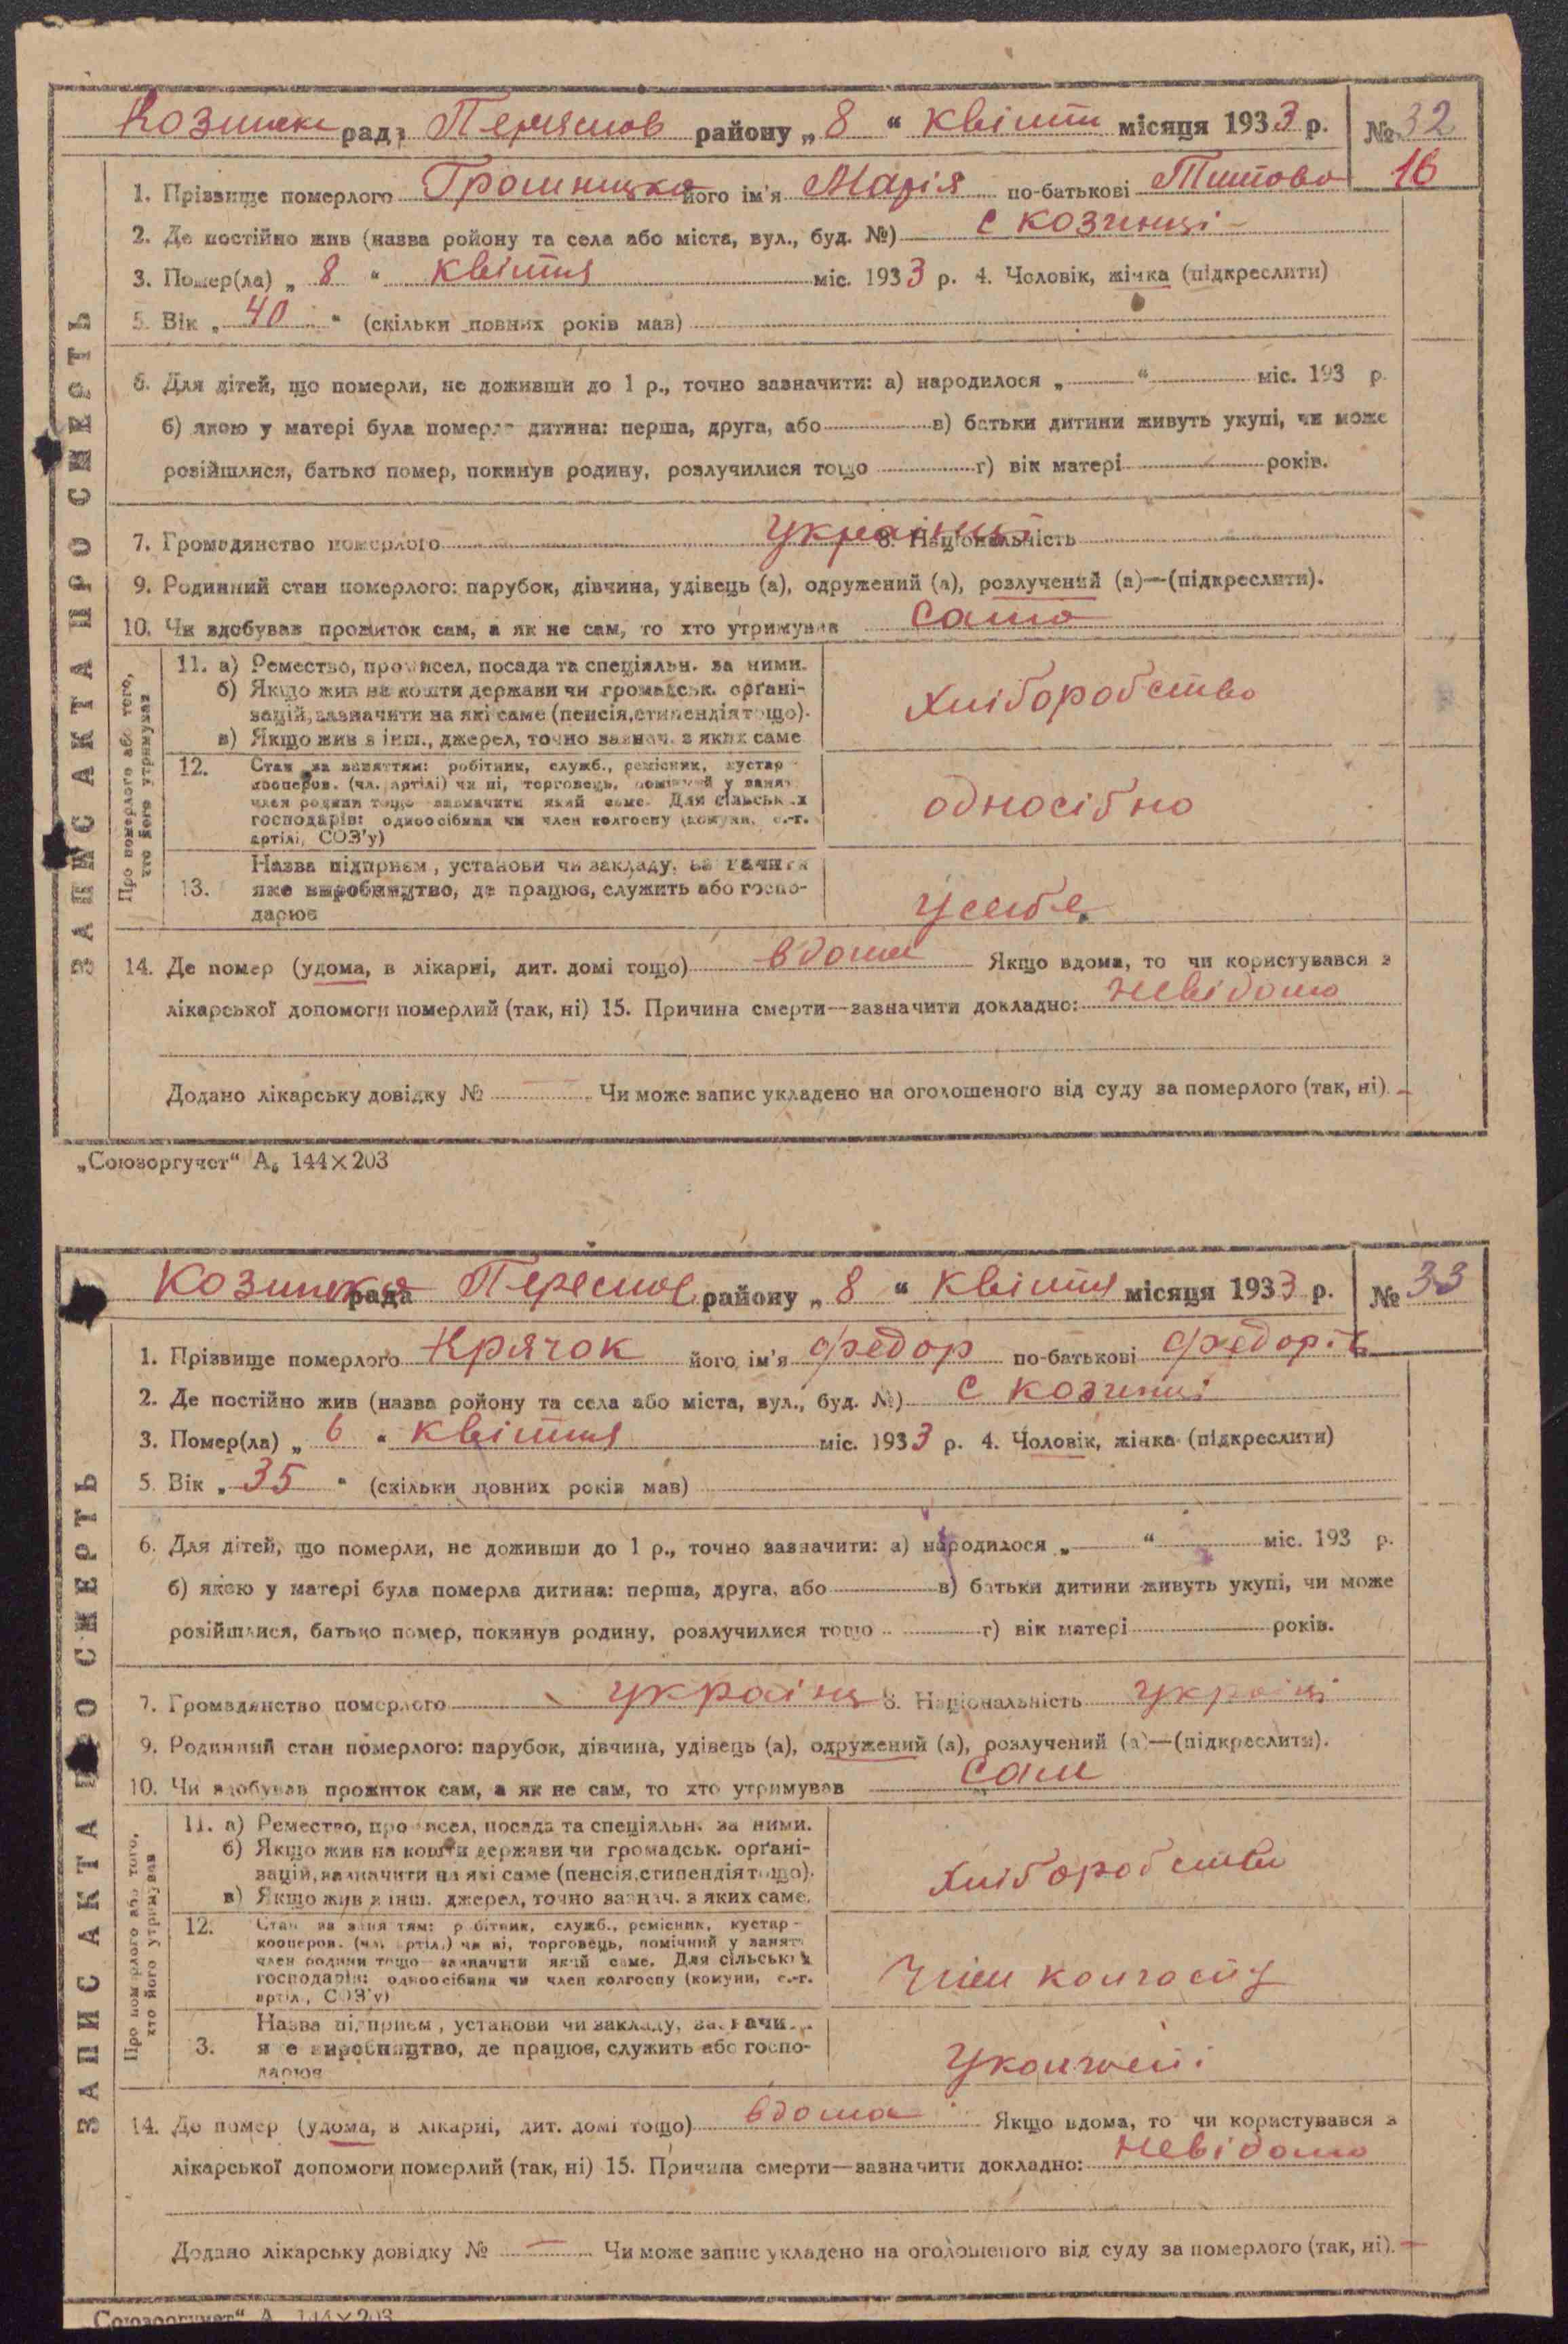 Козинск рада Переяслов району „8“ Квітня місяця 1933 р. № 32
16
1. Прізвище померлого Трошницка його ім'я Марія по-батькові Титово
2. Де постійно жив (назва ройону та села або міста, вул., буд. №) с козинці
3. Помер(ла) „8“ квітня міс. 1933 р. 4. Чоловік, жінка (підкреслити)
5. Вік „40“ (скільки повних років мав)
6. Для дітей, що померли, не доживши до 1 р., точно зазначити: а) народилося „ “ міс. 193 р.
б) якою у матері була померла дитина: перша, друга, або в) батьки дитини живуть укупі, чи може
розійшлися, батько помер, покинув родину, розлучилися тощо г) вік матері років.
7. Громадянство померлого українці 8. Національність
9. Родинний стан померлого: парубок, дівчина, удівець (а), одружений (а), розлучений (а)—(підкреслити).
10. Чи здобував прожиток сам, а як не сам, то хто утримував само
ЗАПИС АКТА ПРО СМЕРТЬ
Про померлого або того, хто його утримував
11. а) Ремество, промисел, посада та спеціяльн. за ними.
б) Якщо жив на кошти держави чи громадськ. орґані-
зацій, зазначити на які саме (пенсія, стипендія тощо).
в) Якщо жив з інш., джерел, точно зазнач. з яких саме
хліборобство
12. Стан за заняттям: робітник, служб., ремісник, кустар -
кооперов. (чл. артілі) чи ні, торговець, помічний у занят.
член родини тощо зазначити який саме. Для сільських
господарів: одноосібник чи член колгоспу (комуни, с.-г.
артілі, СОЗ'у)
односібно
13. Назва підприєм., установи чи закладу, зазначити
яке виробництво, де працює, служить або госпо-
дарює
у себе
14. Де помер (удома, в лікарні, дит. домі тощо) вдома Якщо вдома, то чи користувався з
лікарської допомоги померлий (так, ні) 15. Причина смерти—зазначити докладно: невідомо
Додано лікарську довідку № — Чи може запис укладено на оголошеного від суду за померлого (так, ні). -
„Союзоргучет“ А₆ 144×203
Козинска рада Переслов району „8“ Квітня місяця 1933 р. № 33
1. Прізвище померлого Крячок його ім'я Федор по-батькові Федорів
2. Де постійно жив (назва ройону та села або міста, вул., буд. №) с козинці
3. Помер(ла) „6“ квітня міс. 1933 р. 4. Чоловік, жінка (підкреслити)
5. Вік „35“ (скільки повних років мав)
6. Для дітей, що померли, не доживши до 1 р., точно зазначити: а) народилося „ “ міс. 193 р.
б) якою у матері була померла дитина: перша, друга, або в) батьки дитини живуть укупі, чи може
розійшлися, батько помер, покинув родину, розлучилися тощо г) вік матері років.
7. Громадянство померлого українц 8. Національність українці
9. Родинний стан померлого: парубок, дівчина, удівець (а), одружений (а), розлучений (а)—(підкреслити).
10. Чи здобував прожиток сам, а як не сам, то хто утримував сам
ЗАПИС АКТА ПРО СМЕРТЬ
Про померлого або того, хто його утримував
11. а) Ремество, промисел, посада та спеціяльн. за ними.
б) Якщо жив на кошти держави чи громадськ. орґані-
зацій, зазначити на які саме (пенсія, стипендія тощо).
в) Якщо жив з інш. джерел, точно зазнач. з яких саме.
хліборобство
12. Стан за заняттям: робітник, служб., ремісник, кустар -
кооперов. (чл. артілі) чи ні, торговець, помічний у занят.
член родини тощо зазначити який саме. Для сільських
господарів: одноосібник чи член колгоспу (комуни, с.-г.
артілі, СОЗ'у)
член колгоспу
3. Назва підприєм., установи чи закладу, зазначити
яке виробництво, де працює, служить або госпо-
дарює
У колгоспі
14. Де помер (удома, в лікарні, дит. домі тощо) вдома Якщо вдома, то чи користувався з
лікарської допомоги померлий (так, ні) 15. Причина смерти—зазначити докладно: невідомо
Додано лікарську довідку № — Чи може запис укладено на оголошеного від суду за померлого (так, ні). —
Союзоргучет“ А 144×203